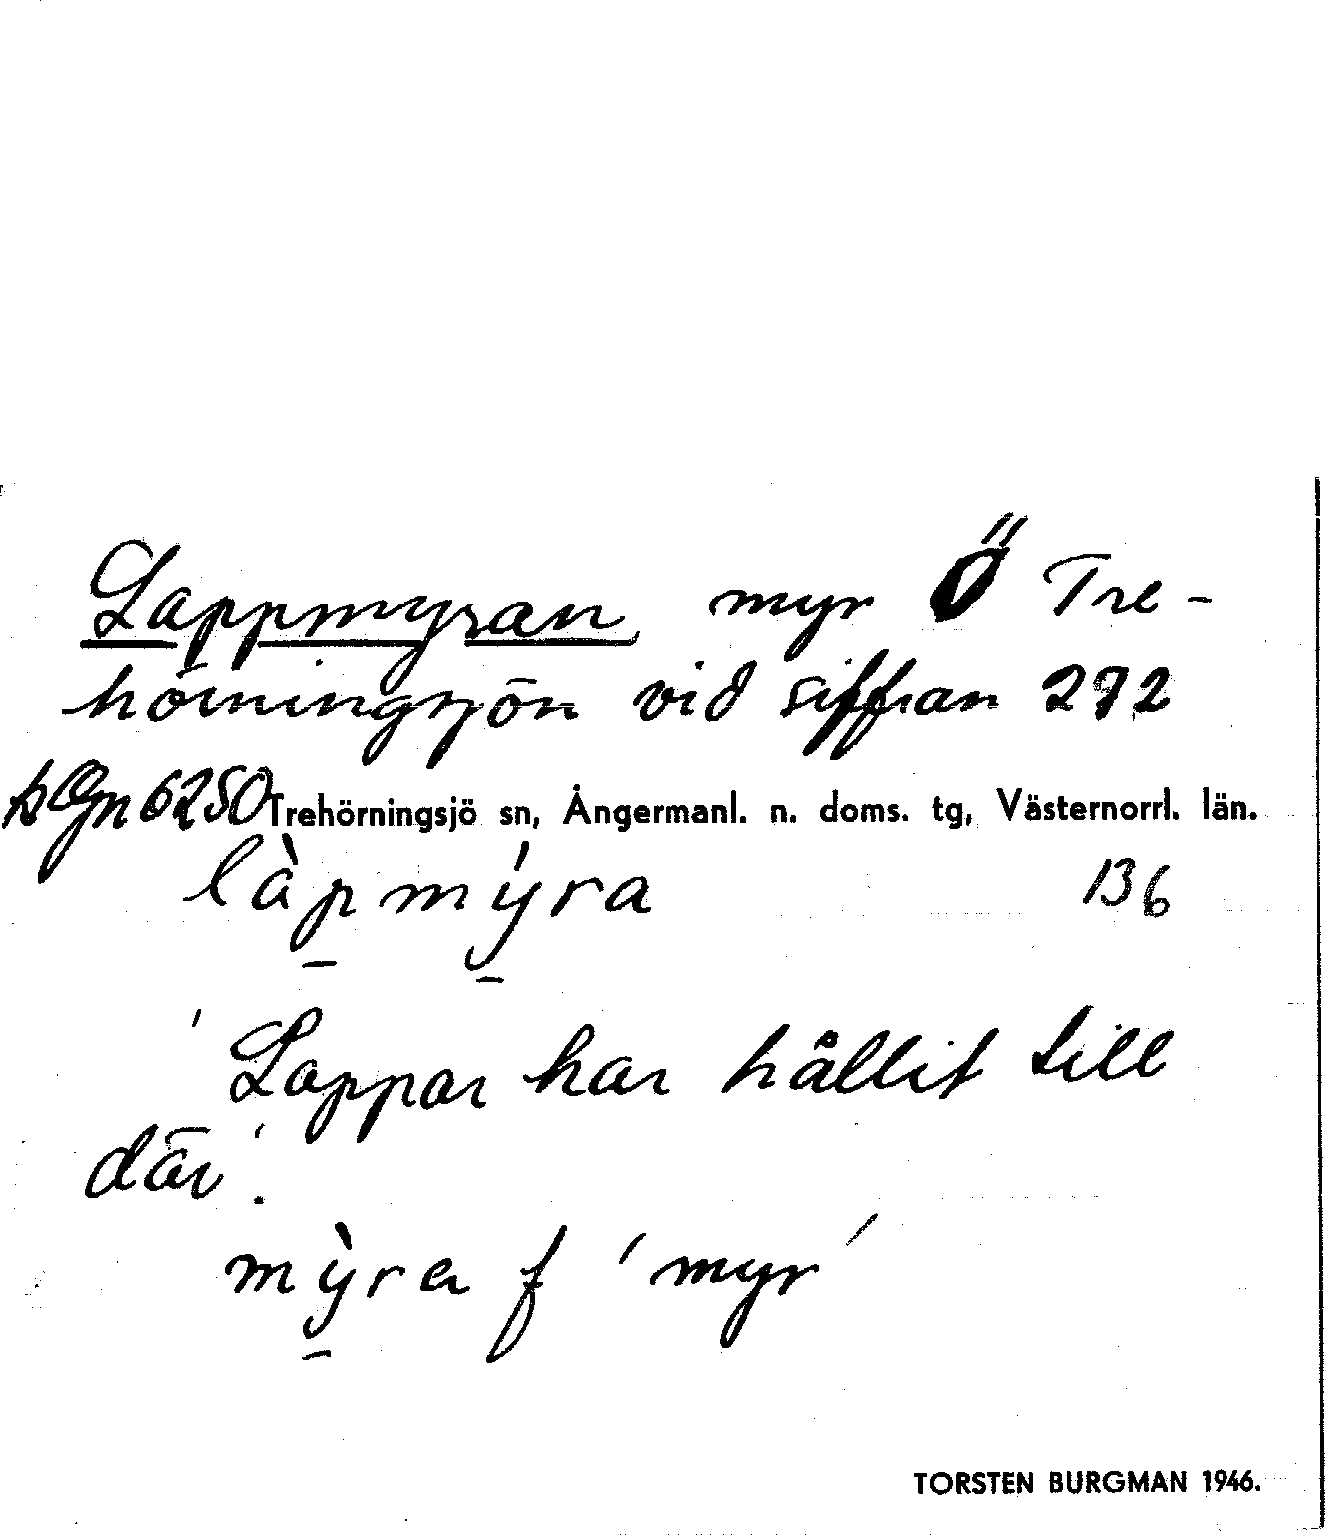 Lappmyran myr Ö Tre-
hörningsjön vid siffran 272
6250 Trehörningsjö sn, Ångermanl. n. doms. tg, Västernorrl. län.
làp̱mý̱ra 136
'Lappar har hållit till
där'.
mỳ̱ra f 'myr'
TORSTEN BURGMAN 1946.